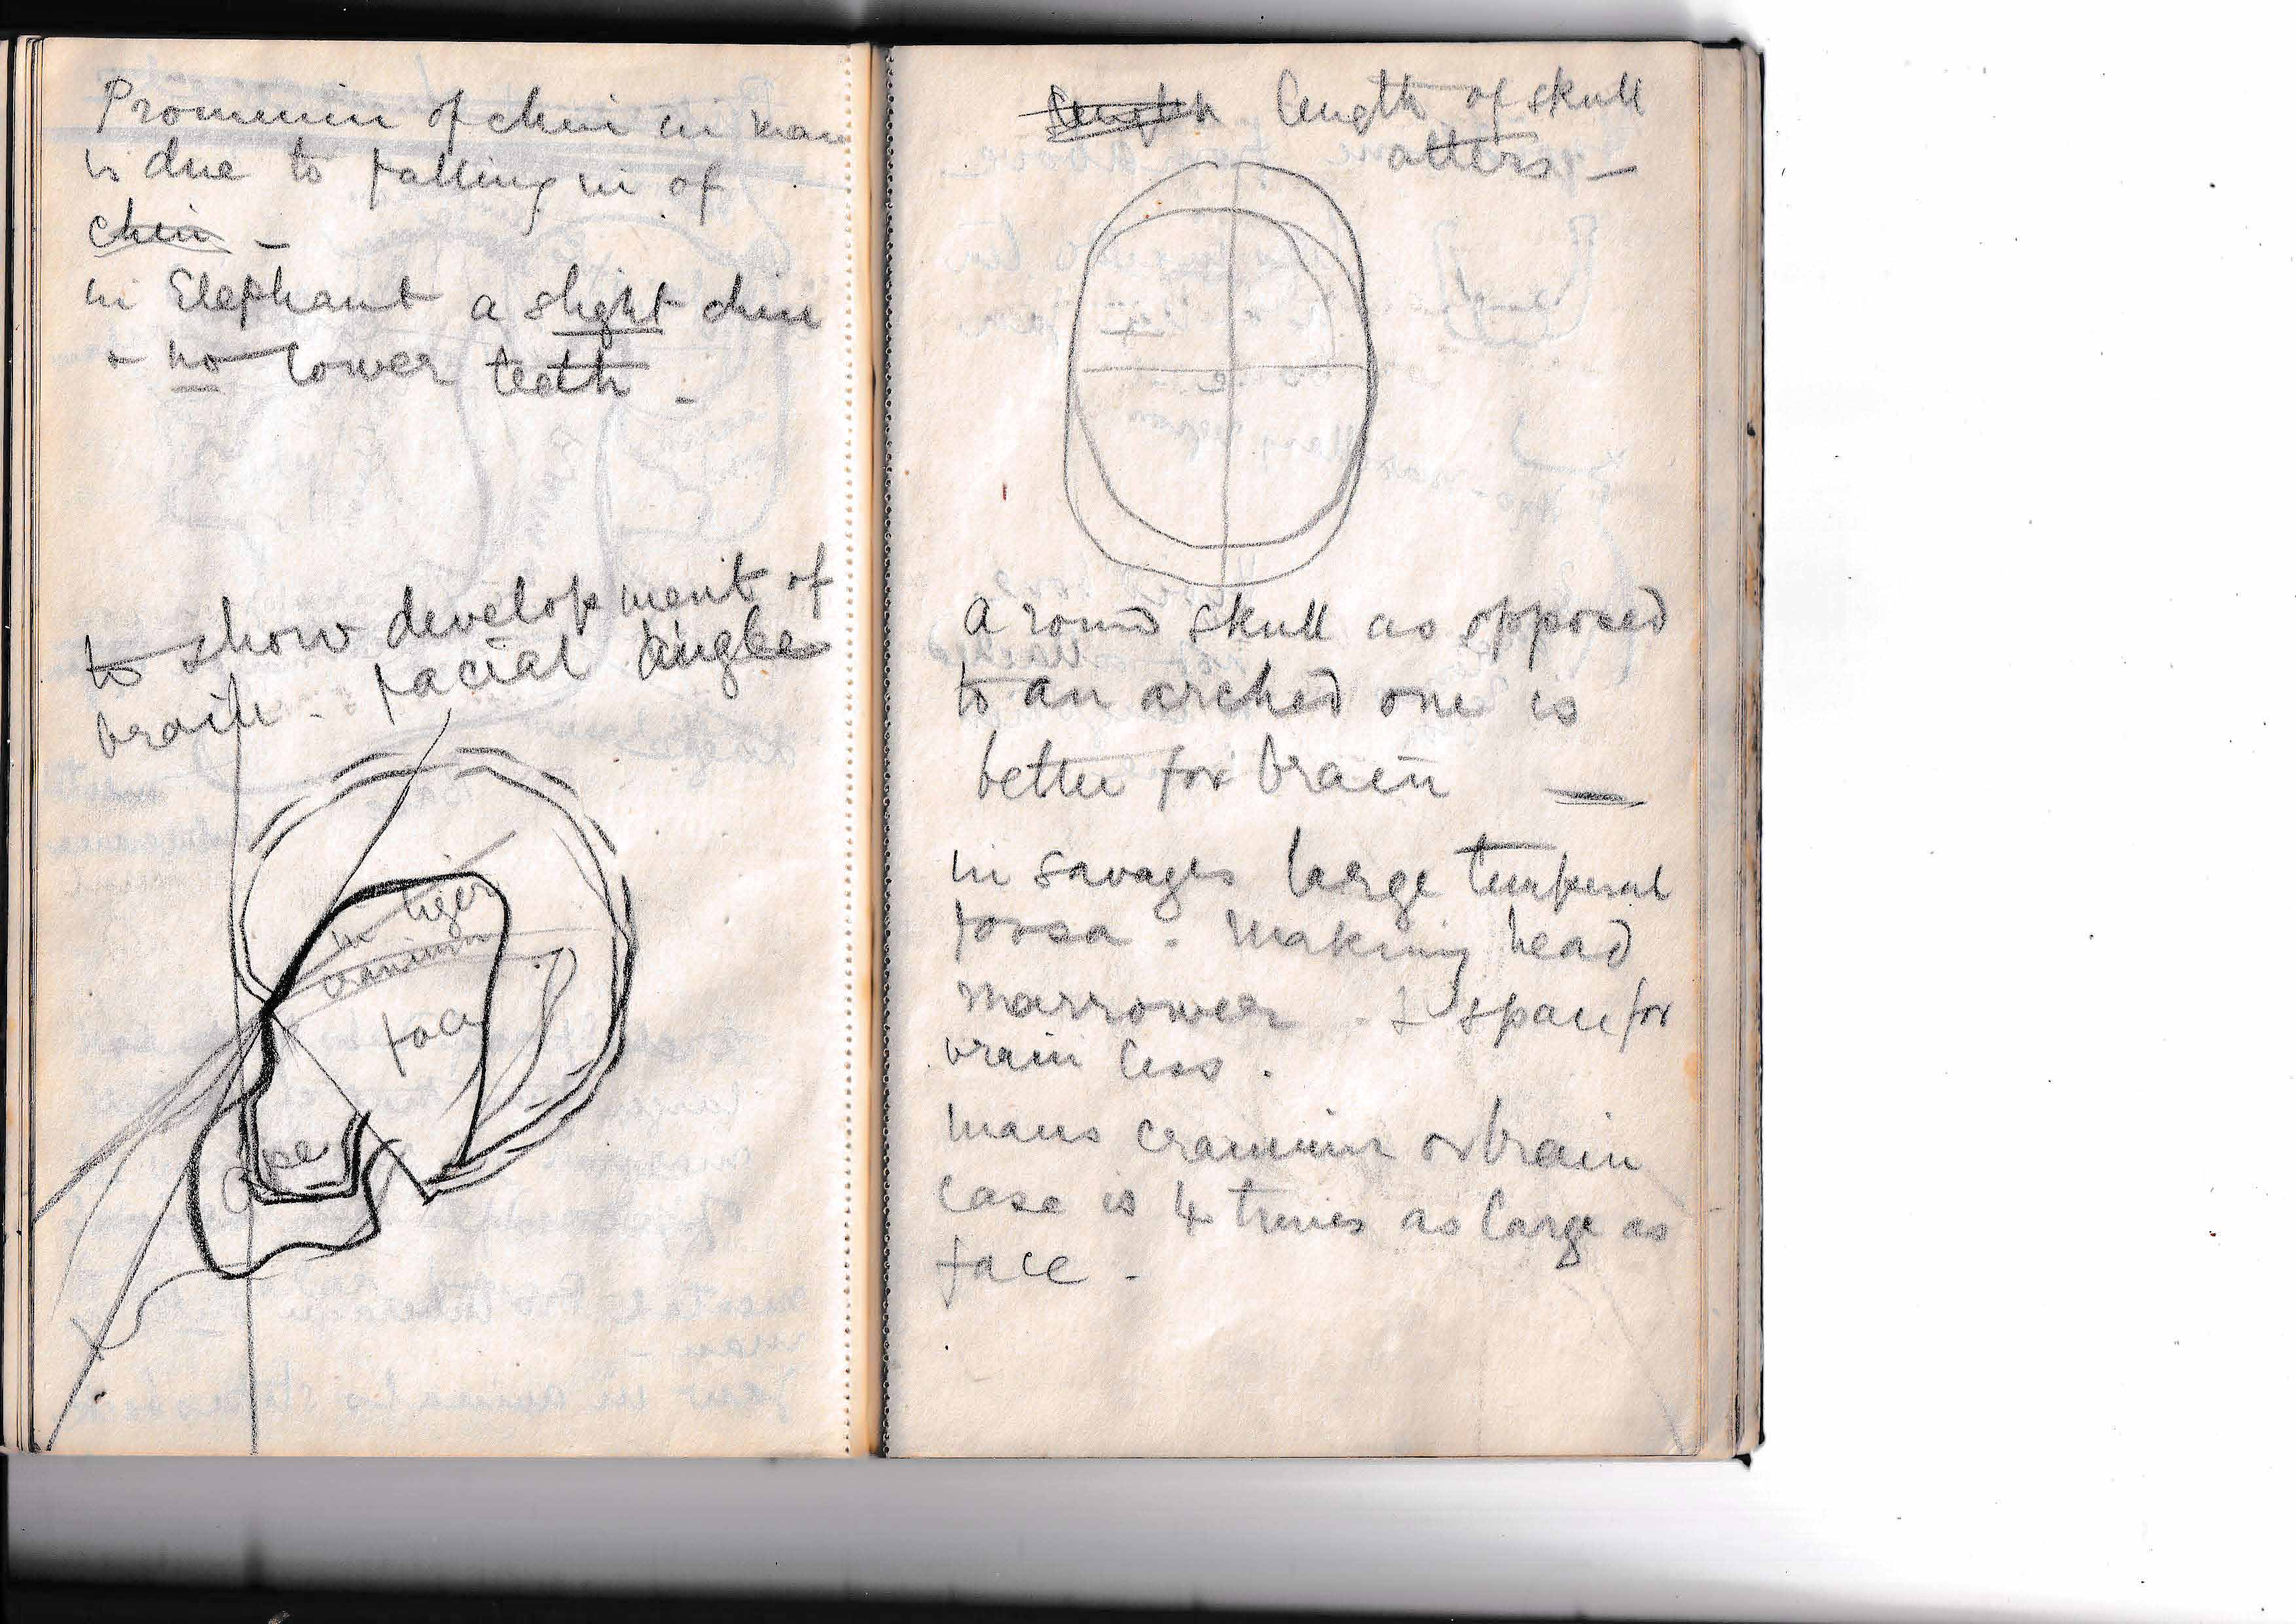 Prominin of chin in man
is due to falling in of
chin –
in Elephant a slight chin
+ no lower teeth –
to show development of
brain. facial angle
in tiger
cranium
face
ape
length length of skull
alters –
a round skull as opposed
to an arched one is
better for brain –
in savages large temporal
fossa. Making head
narrower. & span for
brain less.
mans cranium or brain
case is 4 times as large as
face –